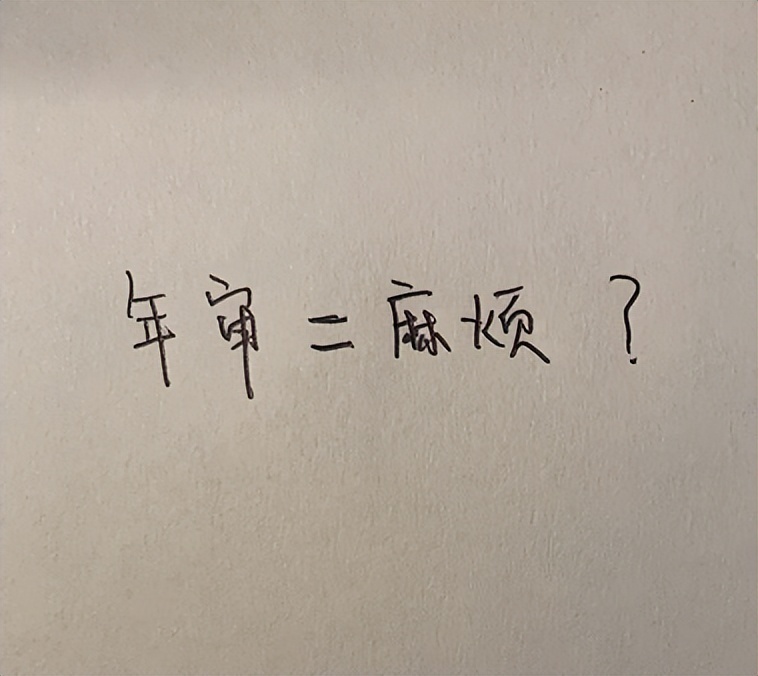 年审=麻烦?